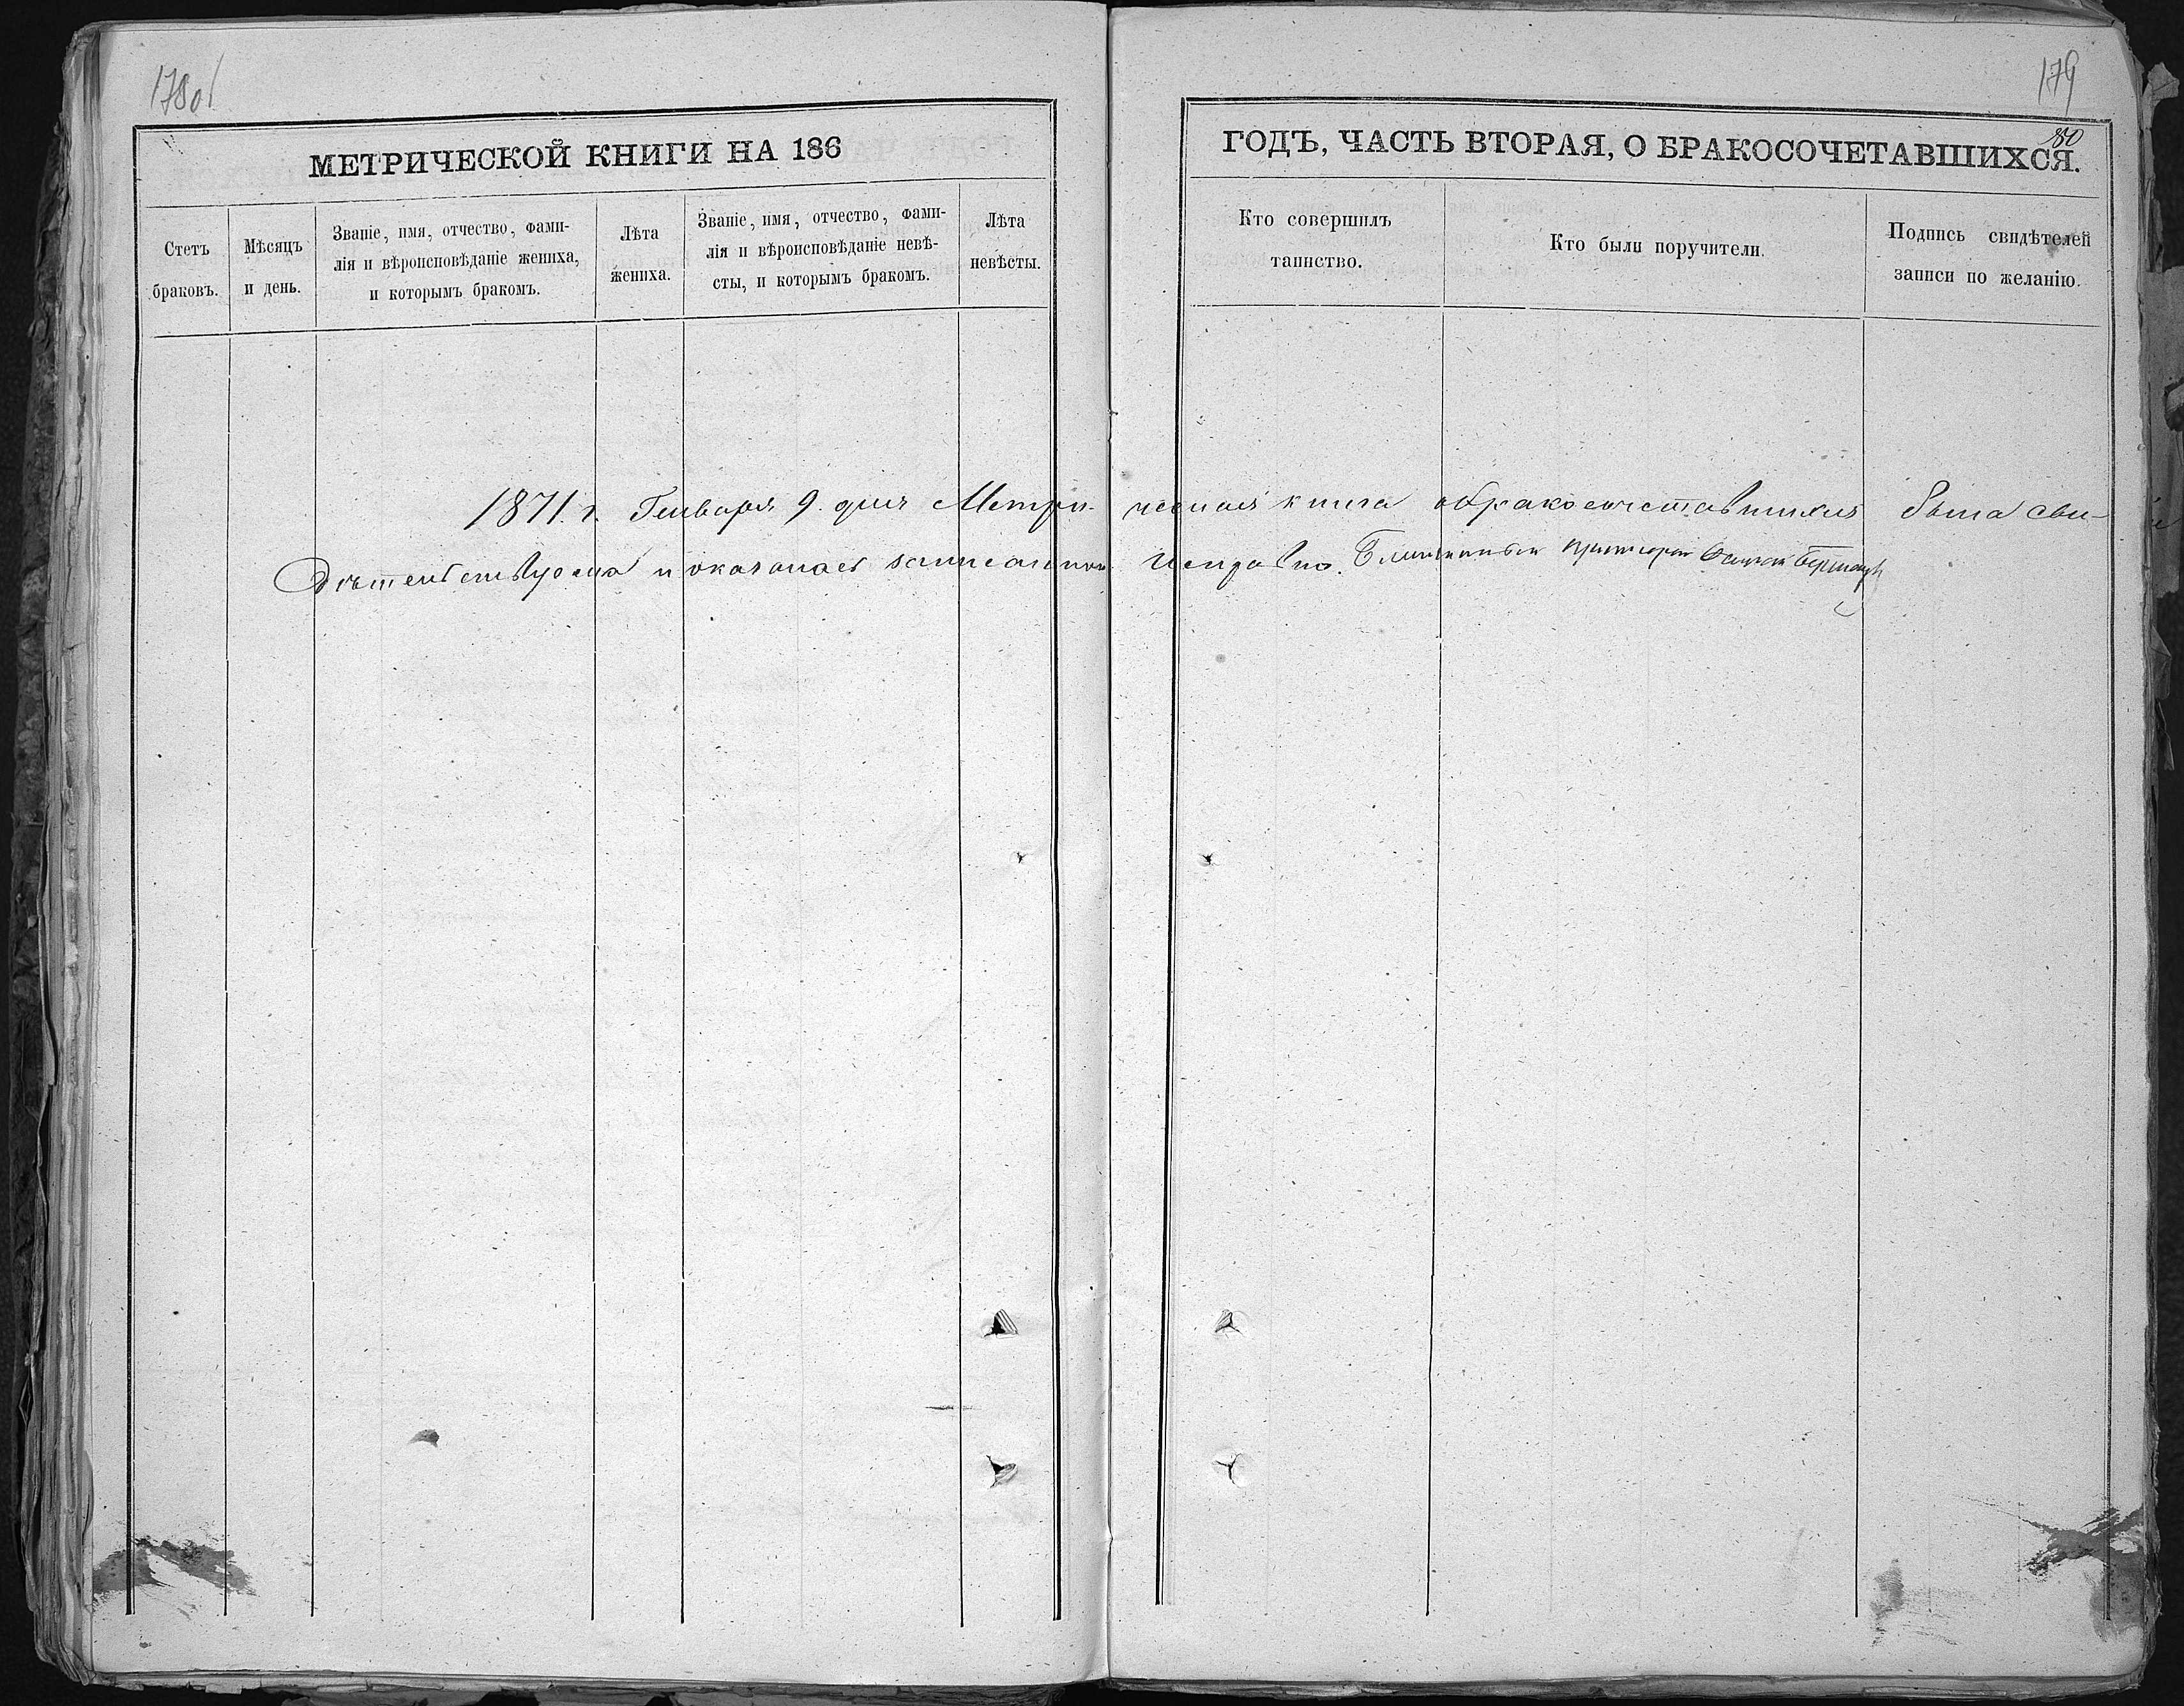 178об
179
80
МЕТРИЧЕСКОЙ КНИГИ НА 186
ГОДЪ, ЧАСТЬ ВТОРАЯ, О БРАКОСОЧЕТАВШИХСЯ.
Счетъ
браковъ.
Мѣсяцъ
и день.
Званіе, имя, отчество, фами-
лія и вѣроисповѣданіе жениха,
и которымъ бракомъ.
Лѣта
жениха.
Званіе, имя, отчество, фами-
лія и вѣроисповѣданіе невѣ-
сты, и которымъ бракомъ.
Лѣта
невѣсты.
Кто совершилъ
таинство.
Кто были поручители.
Подпись свидѣтелей
записи по желанію.
1871. г. Генваря 9. дня Метри- ческая книга о бракосочетавшихся была сви-
дѣтельствуема и оказалась писанною исправно.